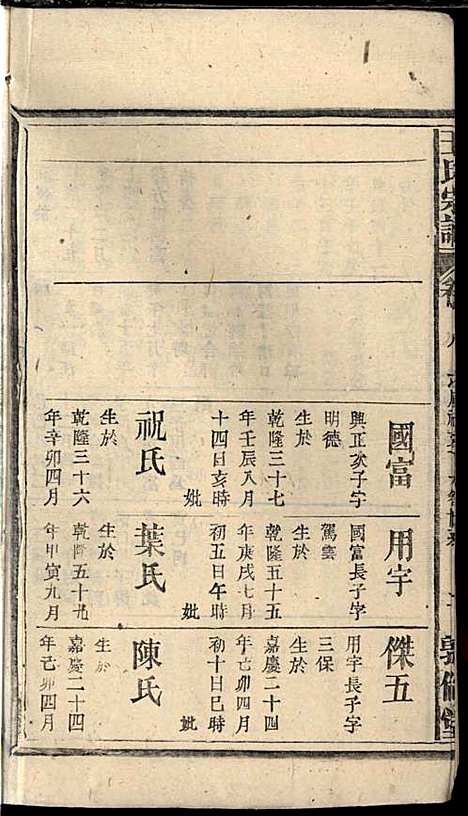 王氏宗譜
卷
八
敦倫堂
國富
興正次子字
明德
生於
乾隆三十七
年壬辰八月
十四日亥時
妣
祝氏
生於
乾隆三十六
年辛卯四月
用字
國富長子字
駕雲
生於
乾隆五十五
年庚戌七月
初五日午時
妣
葉氏
生於
乾隆五十九
年甲寅九月
傑五
用字長子字
三保
生於
嘉慶二十四
年己卯四月
初十日巳時
妣
陳氏
生於
嘉慶二十四
年己卯四月